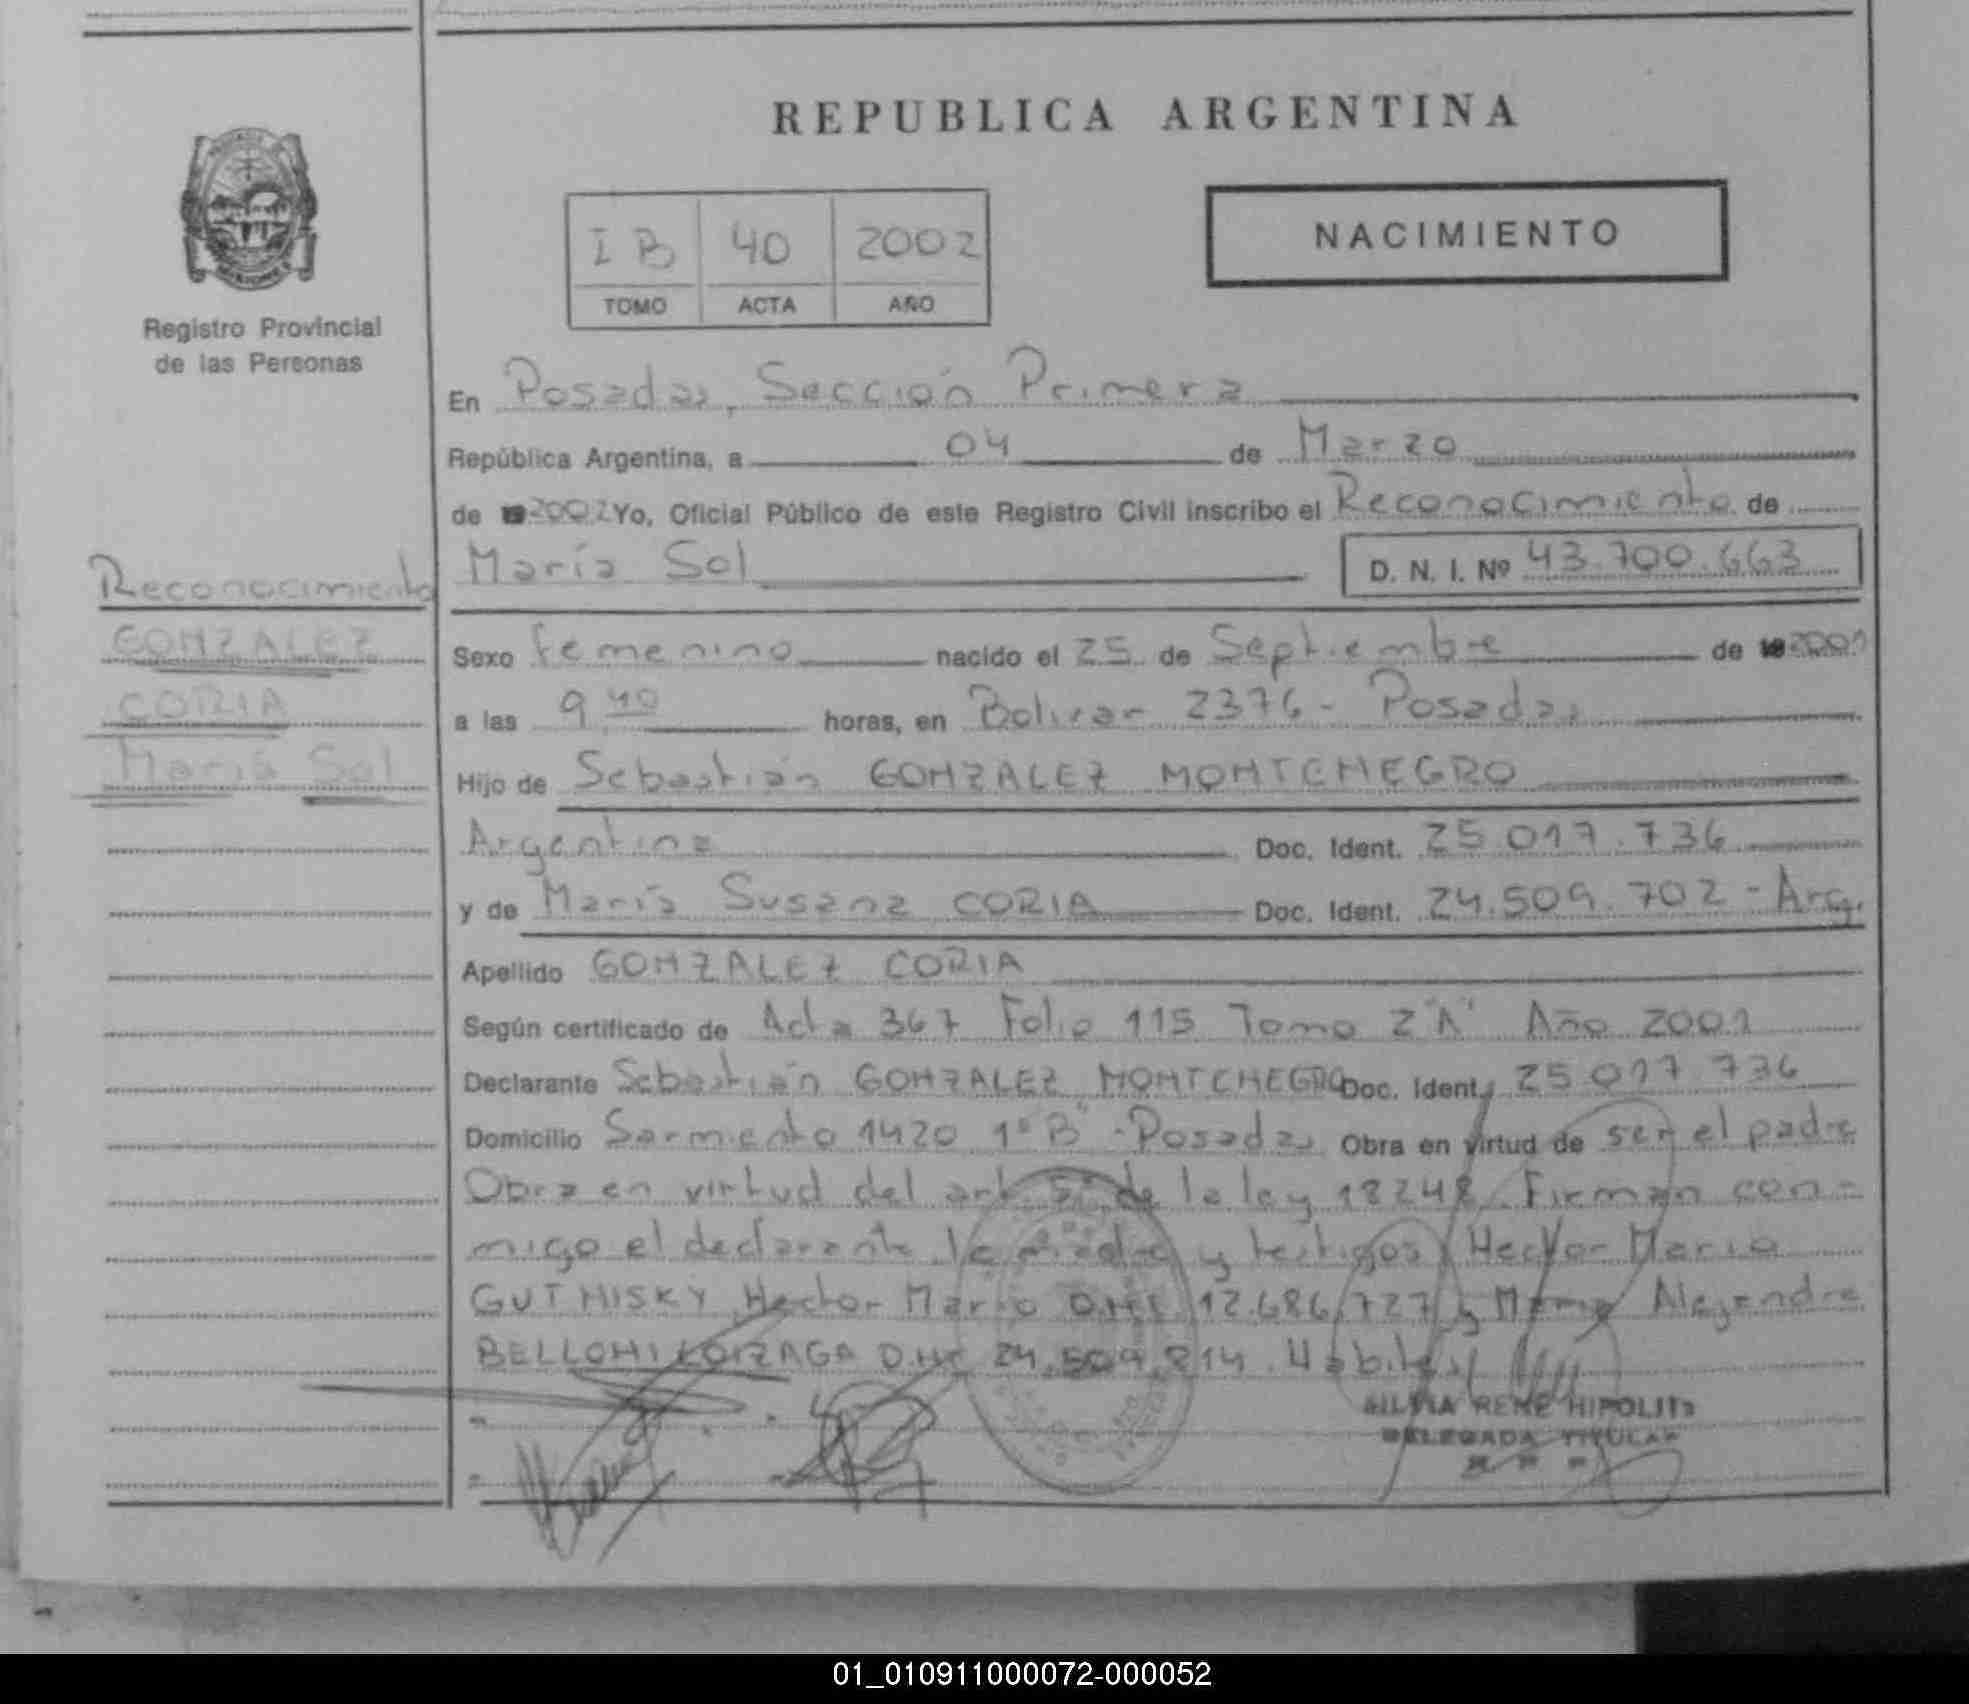 REPUBLICA ARGENTINA
NACIMIENTO
I B 40 2002
TOMO ACTA AÑO
Registro Provincial
de las Personas
En Posadas, Sección Primera
República Argentina, a 04 de Marzo
de 2002 Yo, Oficial Público de este Registro Civil inscribo el Reconocimiento de
María Sol D. N. I. Nº 43.700.663
Reconocimiento
GONZALEZ
CORIA
María Sol
Sexo femenino nacido el 25 de Septiembre de 2001
a las 9 40 horas, en Bolivar 2376 - Posadas
Hijo de Sebastián GONZALEZ MONTENEGRO
Argentina Doc. Ident. 25.017.736
y de María Susana CORIA Doc. Ident. 24.509.702 - Arg.
Apellido GONZALEZ CORIA
Según certificado de Acta 367 Folio 115 Tomo 2"A" Año 2001
Declarante Sebastián GONZALEZ MONTENEGRO Doc. Ident. 25.017.736
Domicilio Sarmiento 1420 1º"B" - Posadas Obra en virtud de ser el padre
Obra en virtud del art. 5º de la ley 18248. Firman con-
migo el declarante, la madre y testigos Hector Mario
GUTNISKY, Hector Mario D.N.I. 12.686.727 y María Alejandra
BELLONI LOIZAGA D.N.I. 24.509.214. Hábiles
SILVIA RENE HIPOLITO
DELEGADA TITULAR
01_010911000072-000052